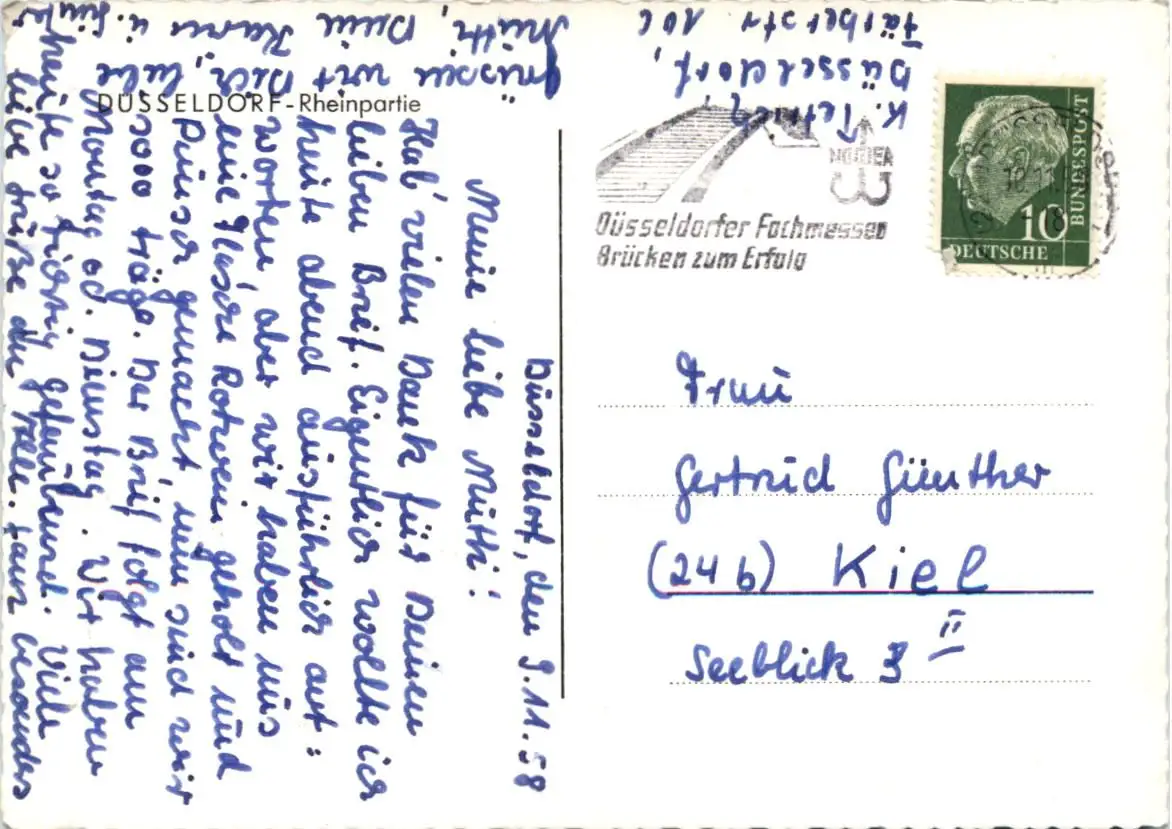 DÜSSELDORF-Rheinpartie
Düsseldorf, den 9.11.58
Meine liebe Mutti!
Hab' vielen Dank für Deinen
lieben Brief. Eigentlich wollte ich
heute abend ausführlich ant=
worten, aber wir haben uns
eine Flasche Rotwein geholt und
Punsch gemacht, nun sind wir
sooo träge. Der Brief folgt am
Montag od. Dienstag. Wir haben
heute so gefaulenzt. Viele
liebe Grüße an Alle. Ganz besonders
grüssen wir Dich, liebe
Mutti, Deine Karin u. Günter
K.
Düsseldorf,
Färberstr 106
NOWEA
Düsseldorfer Fachmessen
Brücken zum Erfolg
10
DEUTSCHE
BUNDESPOST
Frau
Gertrud Günther
(24b) Kiel
Seeblick 3 II